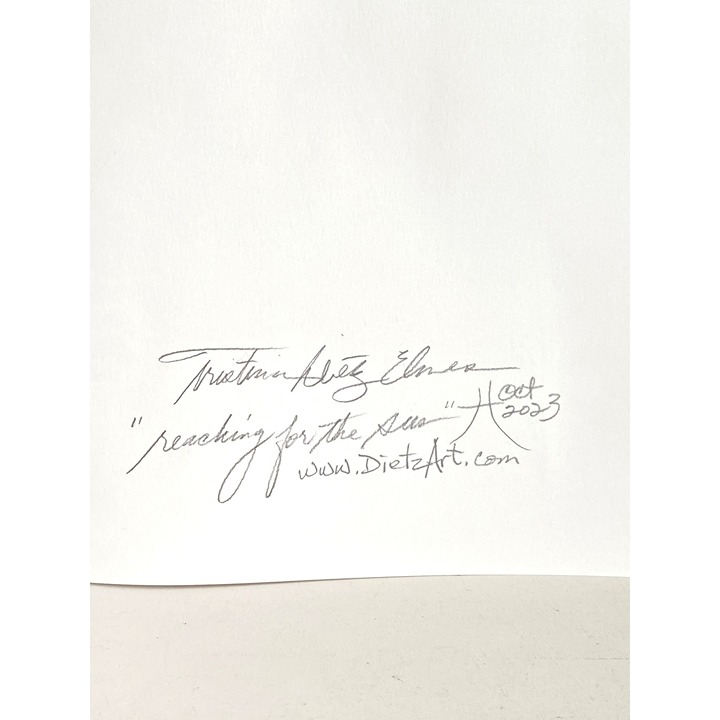 Kristina Dietz Elmes
"reaching for the sun" Oct
2023
www.DietzArt.com